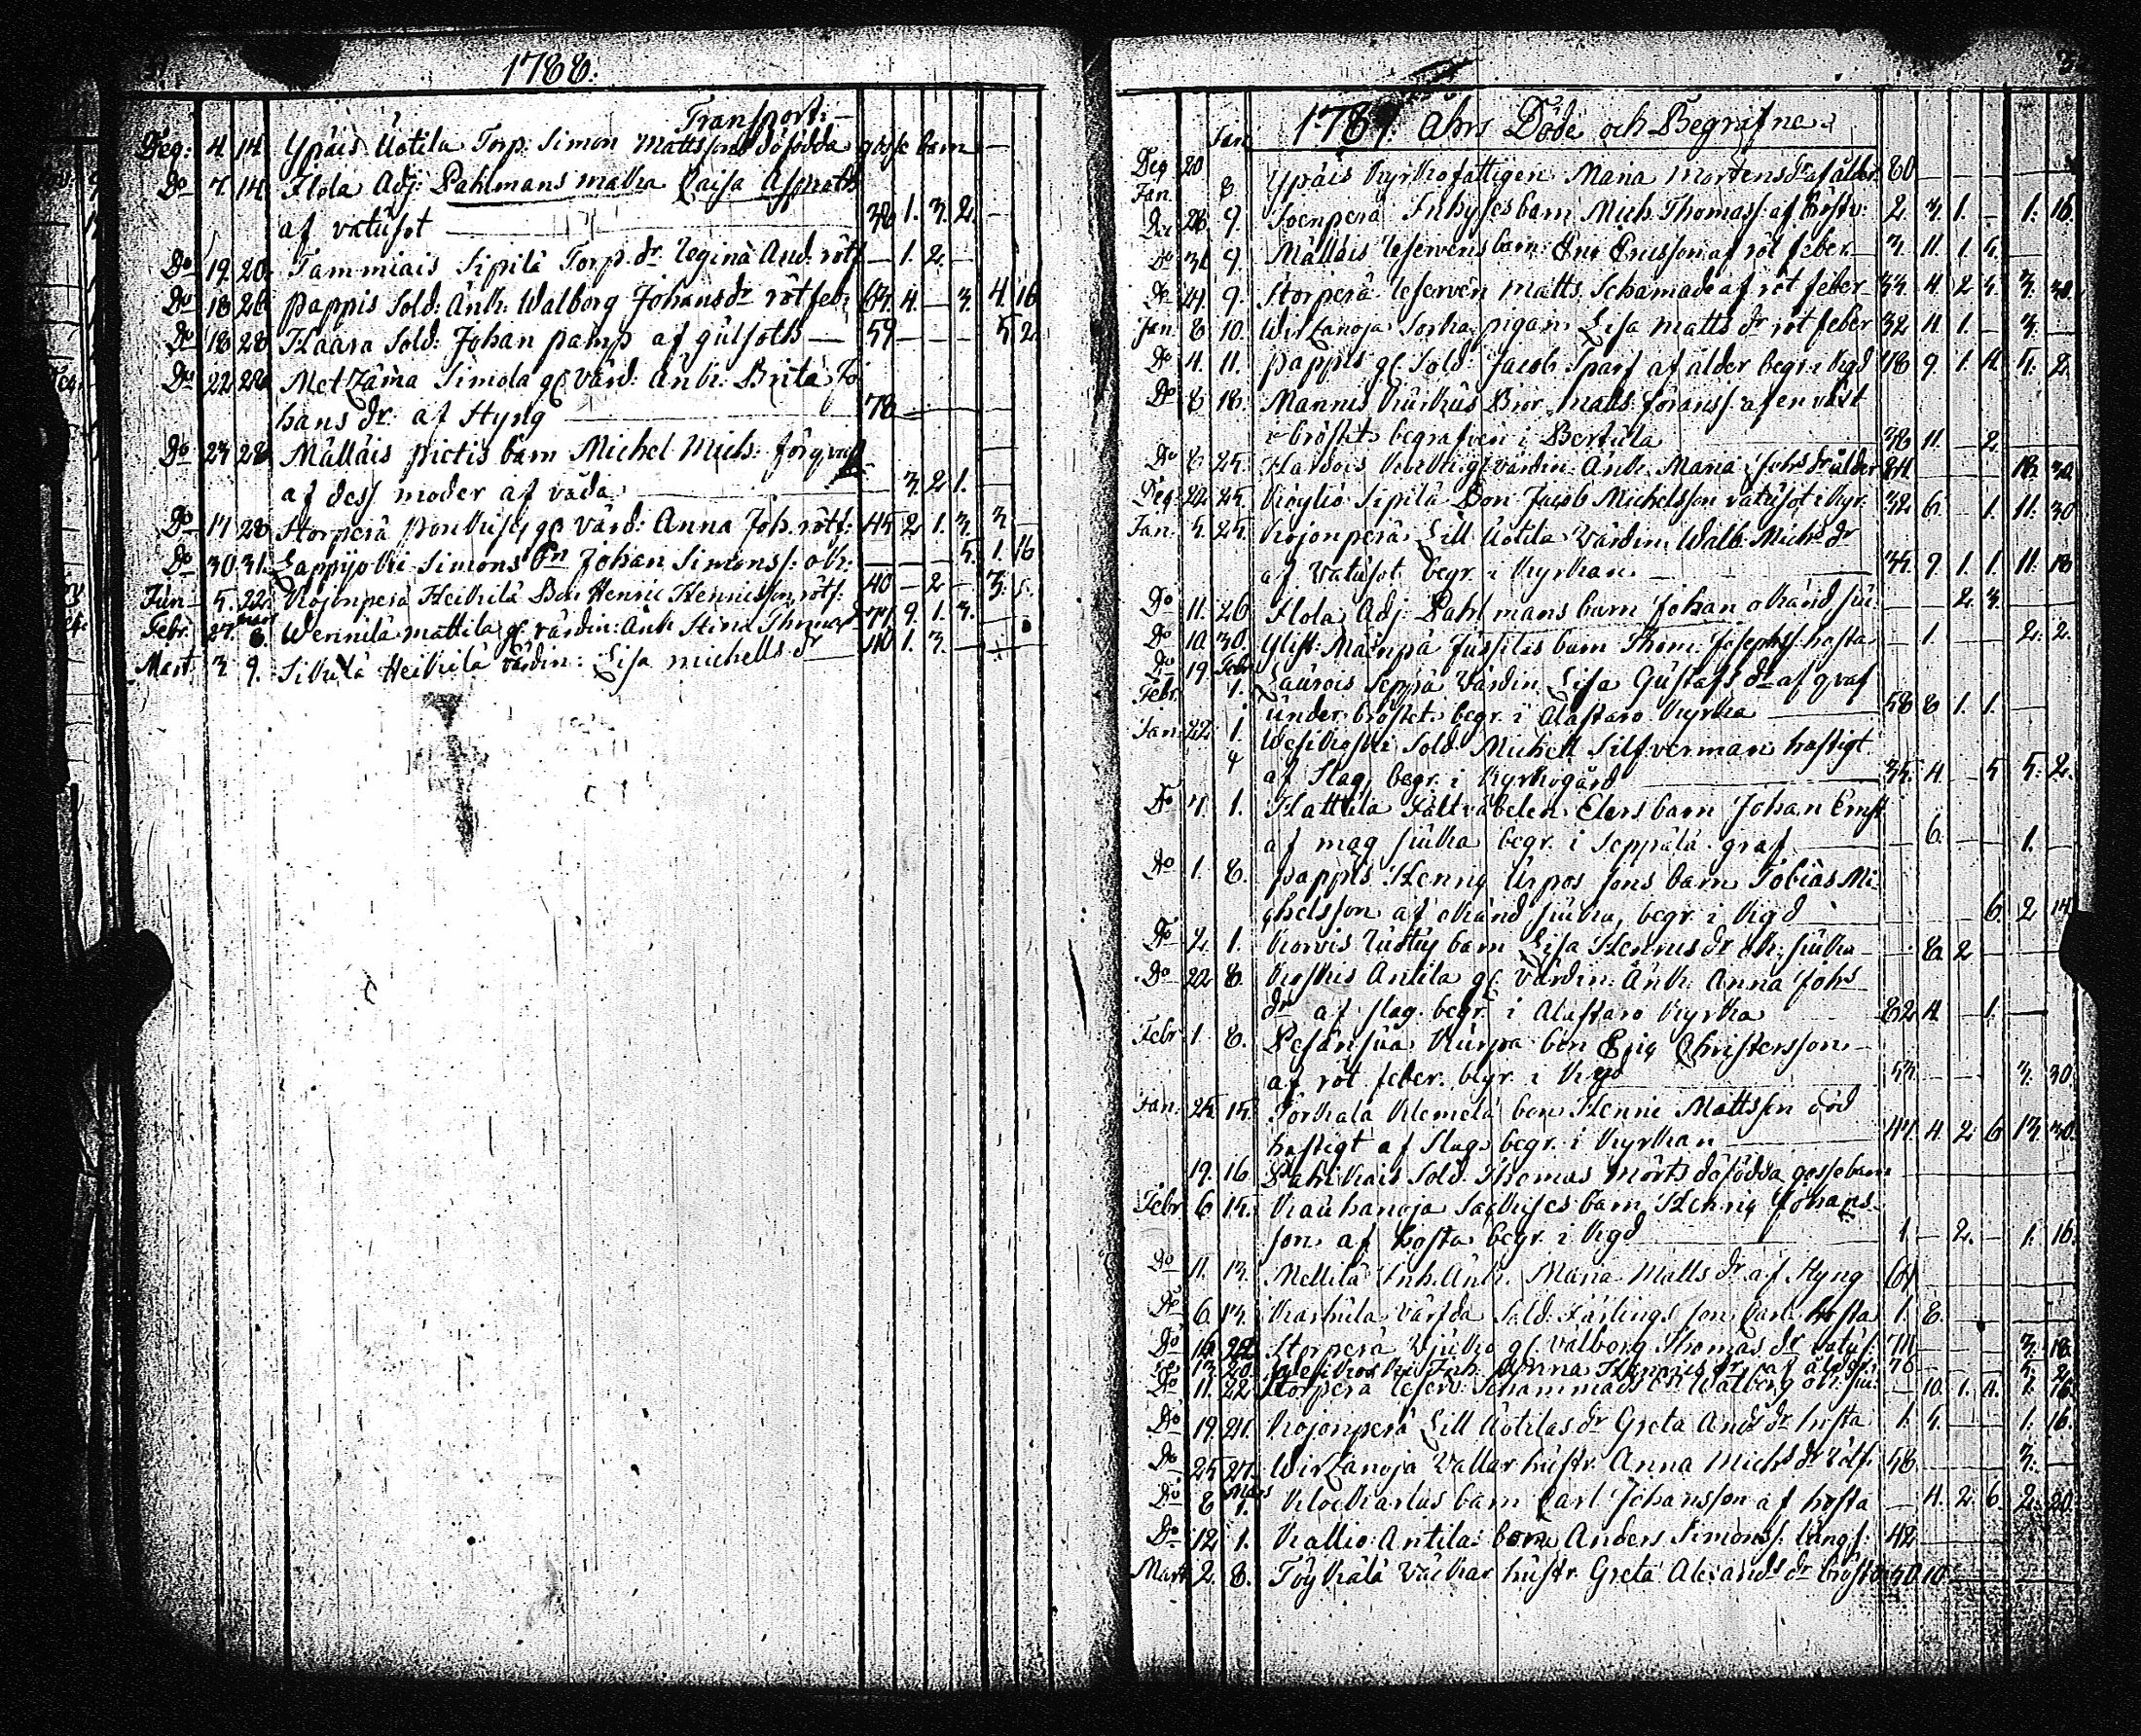 1788.
Transport: —
Dec: 4 14 Ypäis Uotila Torp. Simon Mattssons döfödda gosse barn —
Do 7 14. Flola Adj: Pahlmans maka Caisa Asproth
af vatusot 38 1. 3. 2. —
Do 19 20. Tammiais Sipilä Torp. dr Regina And: rötf — 1. 2. —
Do 18 26 Pappis Sold: Änk: Walborg Johansdr rötfeb: 63. 4. — 3. 4 16
Do 18 28 Haara Sold: Johan Pamp af gulsoth — 59 — — — 5 2
Do 22 28 Metzäma Simola gl. Värd: Änk: Brita Jo
hans dr. af Styng 78 — —
Do 23 28 Mälläis Pietis barn Michel Mich: förqvaf
af dess moder af våda 3. 2 1. —
Do 17 28 Storperä gl: Värd: Anna Joh. rötf: 45 2 1. 3. 3 —
Do 30 31. Lappijoki Simons Johan Simonss: ok: — — — 5. 1. 16
Jun — 5. 22. Kojonperä Heikilä Bon Henric Henricsson rötf: 40 — 2 — 3. 5.
Febr. 27. Mars 8. Wennilä Mattila gl värdin: Änk Stina Thomas dr 77 9. 1. 3. —
Mart. 3 9. Sikilä Heikilä Värdin: Lisa Michells dr — 40 1. 3. —
1789. Ahrs Döde och Begrafne
Jan
Dec 20 8 Ypäis Kyrkofattigen Maria Mårtensdr af ålder 80
Jan.
Do 28 9. Inhyses barn Mich. Thomass. af bröstv: 2. 3. 1. — 1. 16.
Do 31 9. Mälläis Reservens barn Eric Ericsson af röt feber 3. 11. 1. 5.
Do 29 9. Storperä Reserven Matts Schamade af röt feber 33. 4 2 5. 3. 30.
Jan. 8 10. Wirzanoja Sorka pigan Lisa Matts dr röt feber 32 4. 1. — 3. —
Do 4. 11. Pappis gl. Sold Jacob Sparf af ålder begr. i Kgd 78 9 1. 4. 5. 2.
Do 8 18. Mannis Kurkus Bror Matts Göranss. af en växt
i bröstet begrafven i Bertula 38 11. — 2.
Do 8 25. Haroois gl. värdin. Änk. Maria Johs dr ålder 84 13. 30
Dec. 22. 25. Köyliö Sipilä Bon Jacob Michelsson vatusot i Kyr: 32 6. — 1. 11. 30
Jan. 5. 25. Kojonperä Lill Uotila Värdin Walb. Michs dr
af Vatusot begr. i Kyrkan 35. 9. 1. 1. 11. 18
Do 11. 26 Flola Adj. Pahlmans barn Johan okänd sju: 2. 3.
Do 10 30. Glist: Mainpä Jussilas barn Thom. Josephss. hosta 1. — 2. 2.
Do 19 Febr. 1. Laurois Seppä Värdin Lisa Gustafs dr af qvaf
Febr. under bröstet begr. i Alastaro Kyrka 58 8 1. 1. —
Jan. 22 1. Wesikoski Sold. Michell Silfverman hastigt
af Slag, begr. i Kyrkogård 35. 4. — 5 5. 2.
Do 7. 1. Hattila Fältväbelen Elers barn Johan Ernst
af mag siuka begr. i Seppälä graf — 6. — 1.
Do 1. 8. Pappis Henric Urpos sons barn Tobias Mi
chelsson af okänd siuka, begr. i Kgd — 6. 2 14
Do 2. 1. Korvis barn Lisa Henrics dr ok: siuka — 8. 2 —
Do 22 8. Koskis Antila gl. Värdin. Änk. Anna Johs
dr af slag. begr. i Alastaro Kyrka 82 4. — 1. —
Febr 1 8. Pesänsuu Kurpa bon Eric Christersson
af röt feber. begr. i Kgd 53 — 3. 30
Jan. 25. 15. Torkala Klemelä bon Henric Mattsson död
hastigt af Slag begr. i Kyrkan 47. 4. 2. 6 13. 30.
19. 16 Sold. Thomas Mörts döfödda gosse barn
Febr 6 15. Kauhanoja barn Henric Johans
son af hosta begr. i Kgd 1. — 2. — 1. 16.
Do 11. 13. Mellilä Inh. Änk. Maria Matts dr af Styng 64
Do 6. 13. Karhula Sold. Färlings son Carl hosta 1. 8.
Do 16 22 Storperä gl. Walborg Thomas dr vatus: 71. 3. 18.
Do 13. 20. Wesikoski Inh. Anna dr af ålder: 78 5. 2.
Do 11. 22 Storperä Reserv: Schammads Walborg ok. siu: — 10. 1. 4. 1. 16.
Do 19. 21. Kojonperä Lill Uotilas dr Greta Ands dr hosta 1. 5. — 1. 16.
Do 25 27. Wirzanoja Vallar hustr. Anna Michs dr rötf: 58 3.
Do 8 Mars 1. barn Carl Johansson af hosta — 4. 2. 6. 2. 20.
Do 12 1. Kallio Antila bon Anders Simonss. lungs: 42
Mart 2 8. Töykälä hustr. Greta Alexands dr bröstv: 50 10.